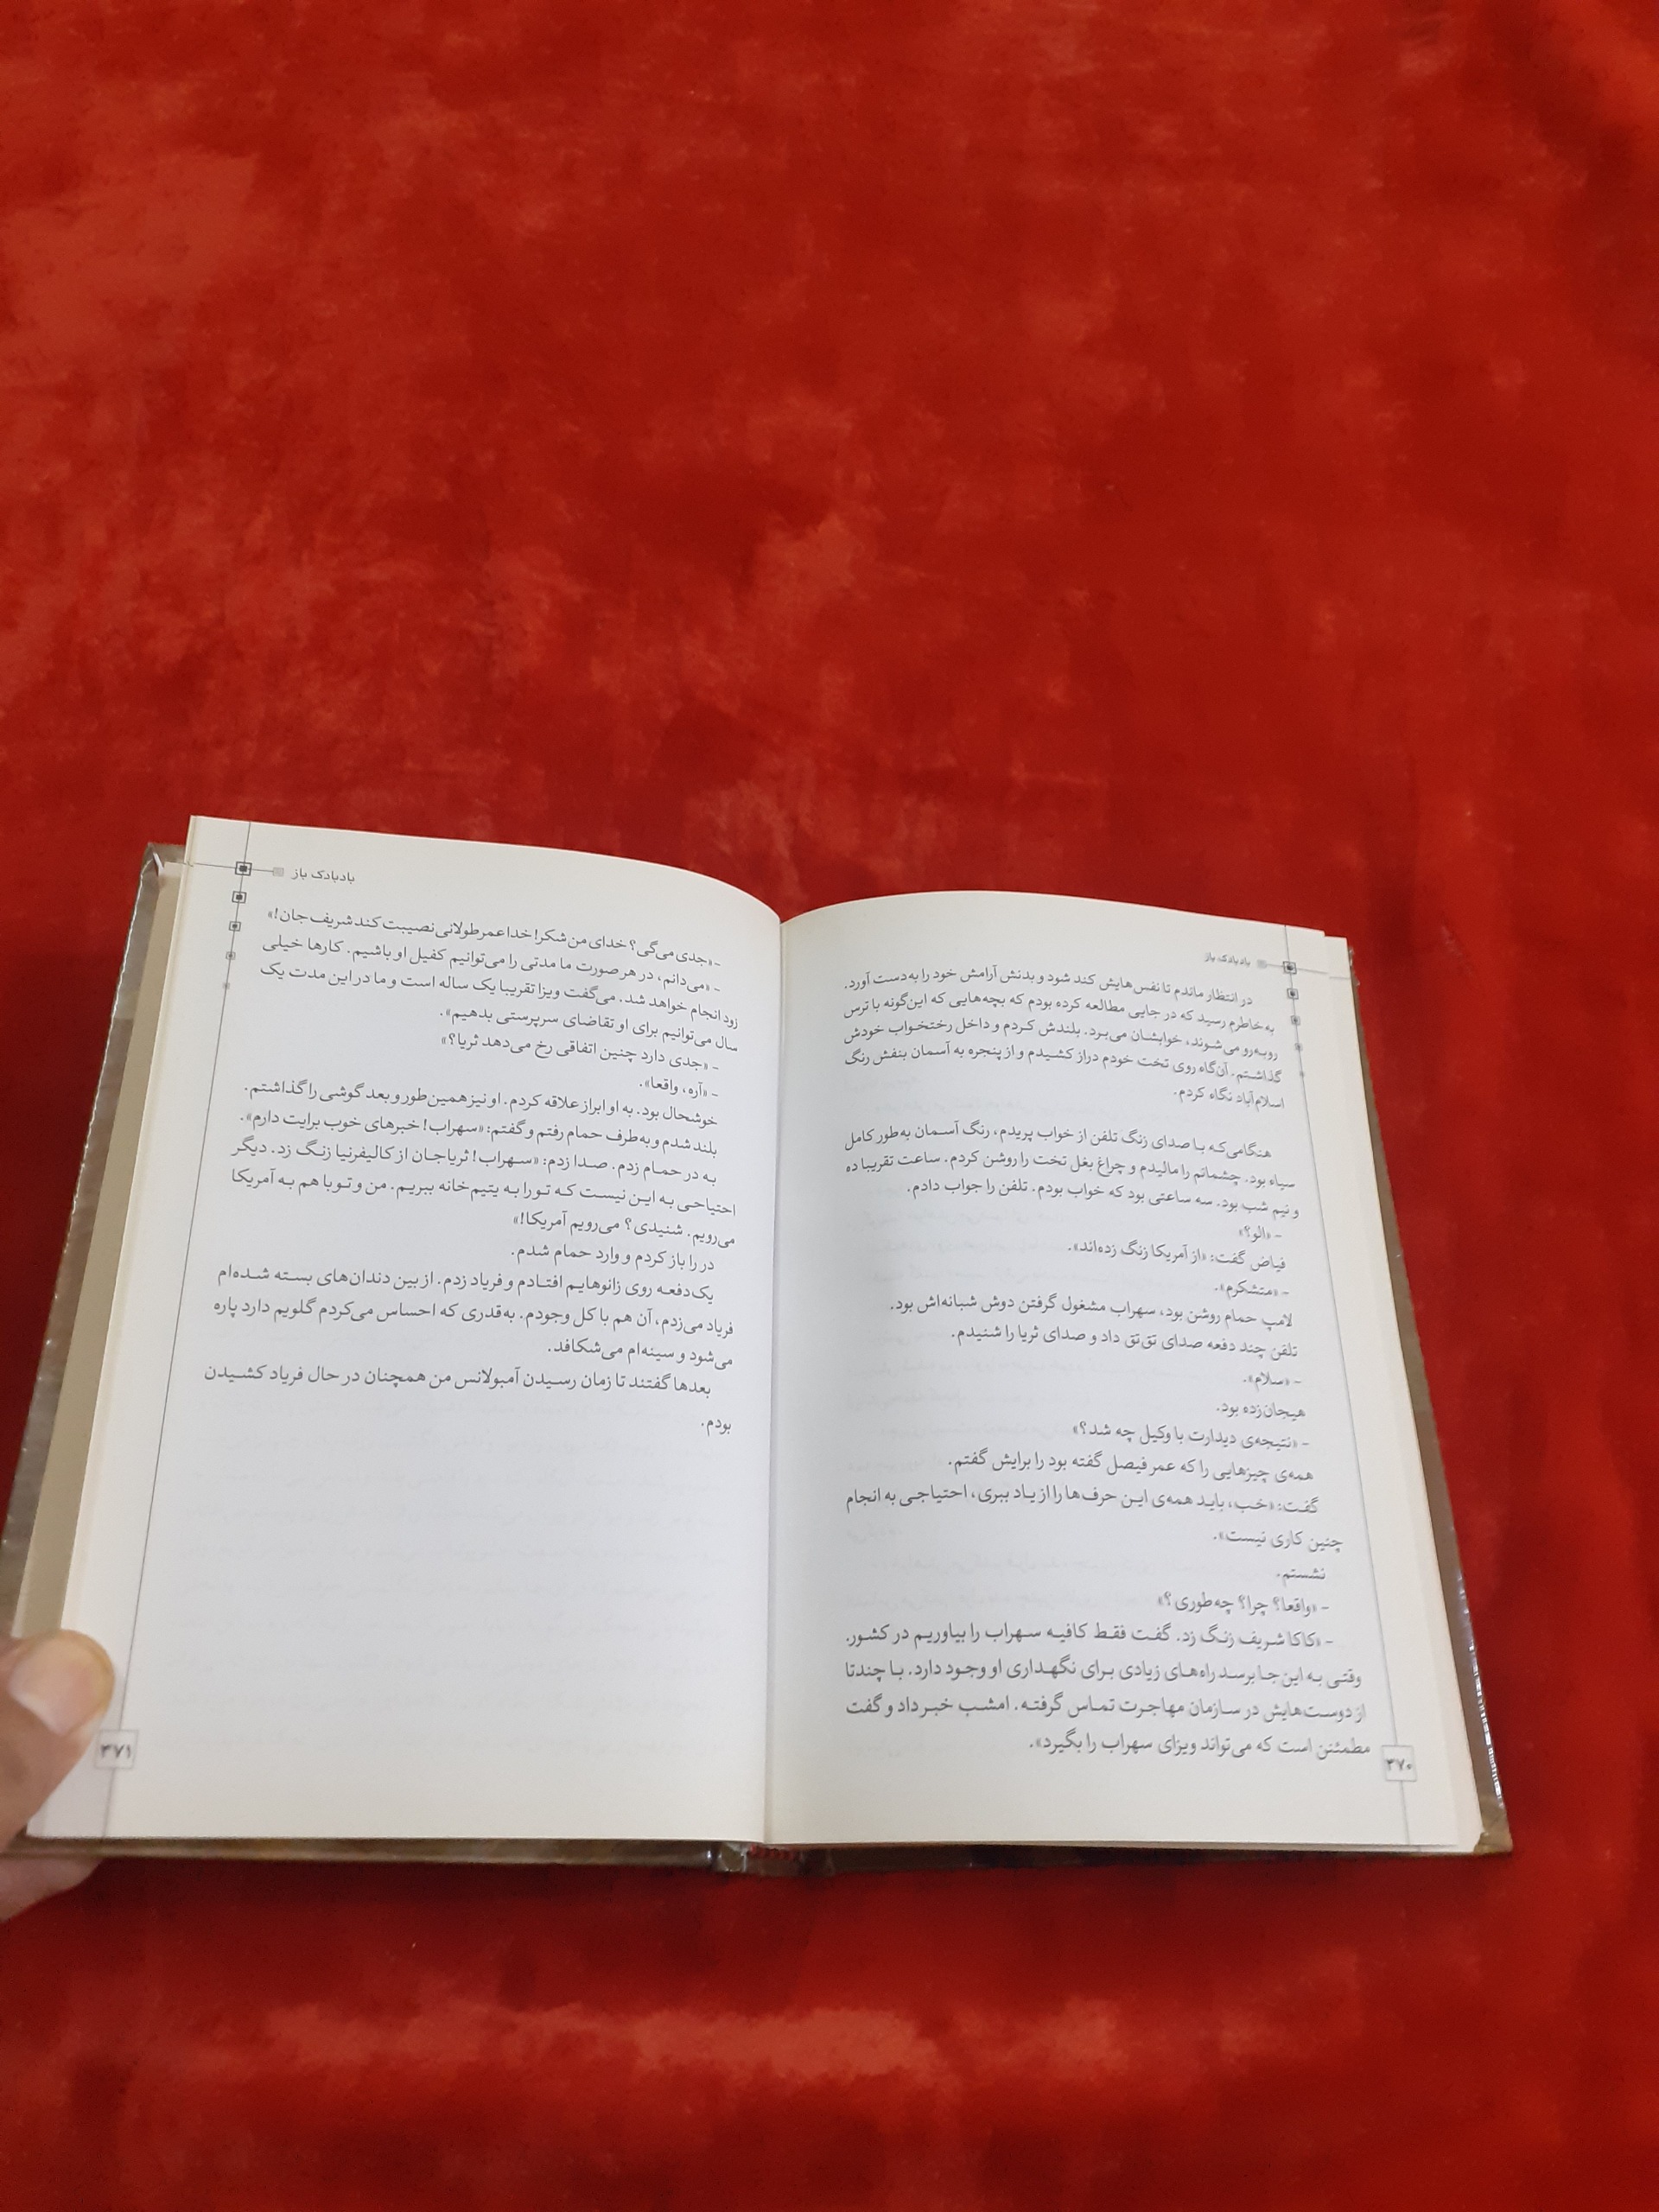 بادبادک باز
در انتظار ماندم تا نفس‌هایش کند شود و بدنش آرامش خود را به‌دست آورد.
به خاطرم رسید که در جایی مطالعه کرده بودم که بچه‌هایی که این‌گونه با ترس
روبه‌رو می‌شوند، خوابشان می‌برد. بلندش کردم و داخل رختخواب خودش
گذاشتم. آن‌گاه روی تخت خودم دراز کشیدم و از پنجره به آسمان بنفش رنگ
اسلام‌آباد نگاه کردم.
هنگامی‌که با صدای زنگ تلفن از خواب پریدم، رنگ آسمان به‌طور کامل
سیاه بود. چشمانم را مالیدم و چراغ بغل تخت را روشن کردم. ساعت تقریبا ده
و نیم شب بود. سه ساعتی بود که خواب بودم. تلفن را جواب دادم.
- «الو؟»
فیاض گفت: «از آمریکا زنگ زده‌اند».
- «متشکرم».
لامپ حمام روشن بود، سهراب مشغول گرفتن دوش شبانه‌اش بود.
تلفن چند دفعه صدای تق‌تق داد و صدای ثریا را شنیدم.
- «سلام».
هیجان‌زده بود.
- «نتیجه‌ی دیدارت با وکیل چه شد؟»
همه‌ی چیزهایی را که عمر فیصل گفته بود را برایش گفتم.
گفت: «خب، باید همه‌ی این حرف‌ها را از یاد ببری، احتیاجی به انجام
چنین کاری نیست».
نشستم.
- «واقعا؟ چرا؟ چه‌طوری؟»
- «کاکا شریف زنگ زد. گفت فقط کافیه سهراب را بیاوریم در کشور.
وقتی به این جا برسد راه‌های زیادی برای نگهداری او وجود دارد. با چندتا
از دوست‌هایش در سازمان مهاجرت تماس گرفته. امشب خبر داد و گفت
مطمئن است که می‌تواند ویزای سهراب را بگیرد».
۳۷۰
بادبادک باز
- «جدی می‌گی؟ خدای من شکر! خدا عمر طولانی نصیبت کند شریف جان!»
- «می‌دانم، در هر صورت ما مدتی را می‌توانیم کفیل او باشیم. کارها خیلی
زود انجام خواهد شد. می‌گفت ویزا تقریبا یک ساله است و ما در این مدت یک
سال می‌توانیم برای او تقاضای سرپرستی بدهیم».
- «جدی دارد چنین اتفاقی رخ می‌دهد ثریا؟»
- «آره، واقعا».
خوشحال بود. به او ابراز علاقه کردم. او نیز همین‌طور و بعد گوشی را گذاشتم.
بلند شدم و به‌طرف حمام رفتم و گفتم: «سهراب! خبرهای خوب برایت دارم».
به در حمام زدم. صدا زدم: «سهراب! ثریا جان از کالیفرنیا زنگ زد. دیگر
احتیاحی به این نیست که تو را به یتیم‌خانه ببریم. من و تو با هم به آمریکا
می‌رویم. شنیدی؟ می‌رویم آمریکا!»
در را باز کردم و وارد حمام شدم.
یک‌دفعه روی زانوهایم افتادم و فریاد زدم. از بین دندان‌های بسته شده‌ام
فریاد می‌زدم، آن هم با کل وجودم. به‌قدری که احساس می‌کردم گلویم دارد پاره
می‌شود و سینه‌ام می‌شکافد.
بعدها گفتند تا زمان رسیدن آمبولانس من همچنان در حال فریاد کشیدن
بودم.
۳۷۱